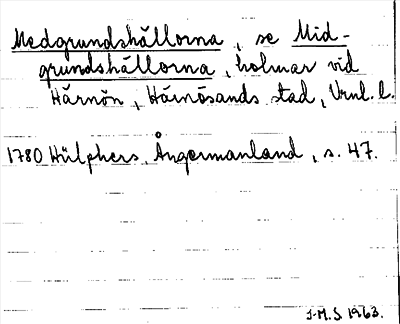 Medgrundshällorna, se Mid-
grundshällorna, holmar vid
Härnön, Härnösands stad, Vrnl. l.
1780 Hülphers, Ångermanland, s. 47.
J-M.S. 1963.